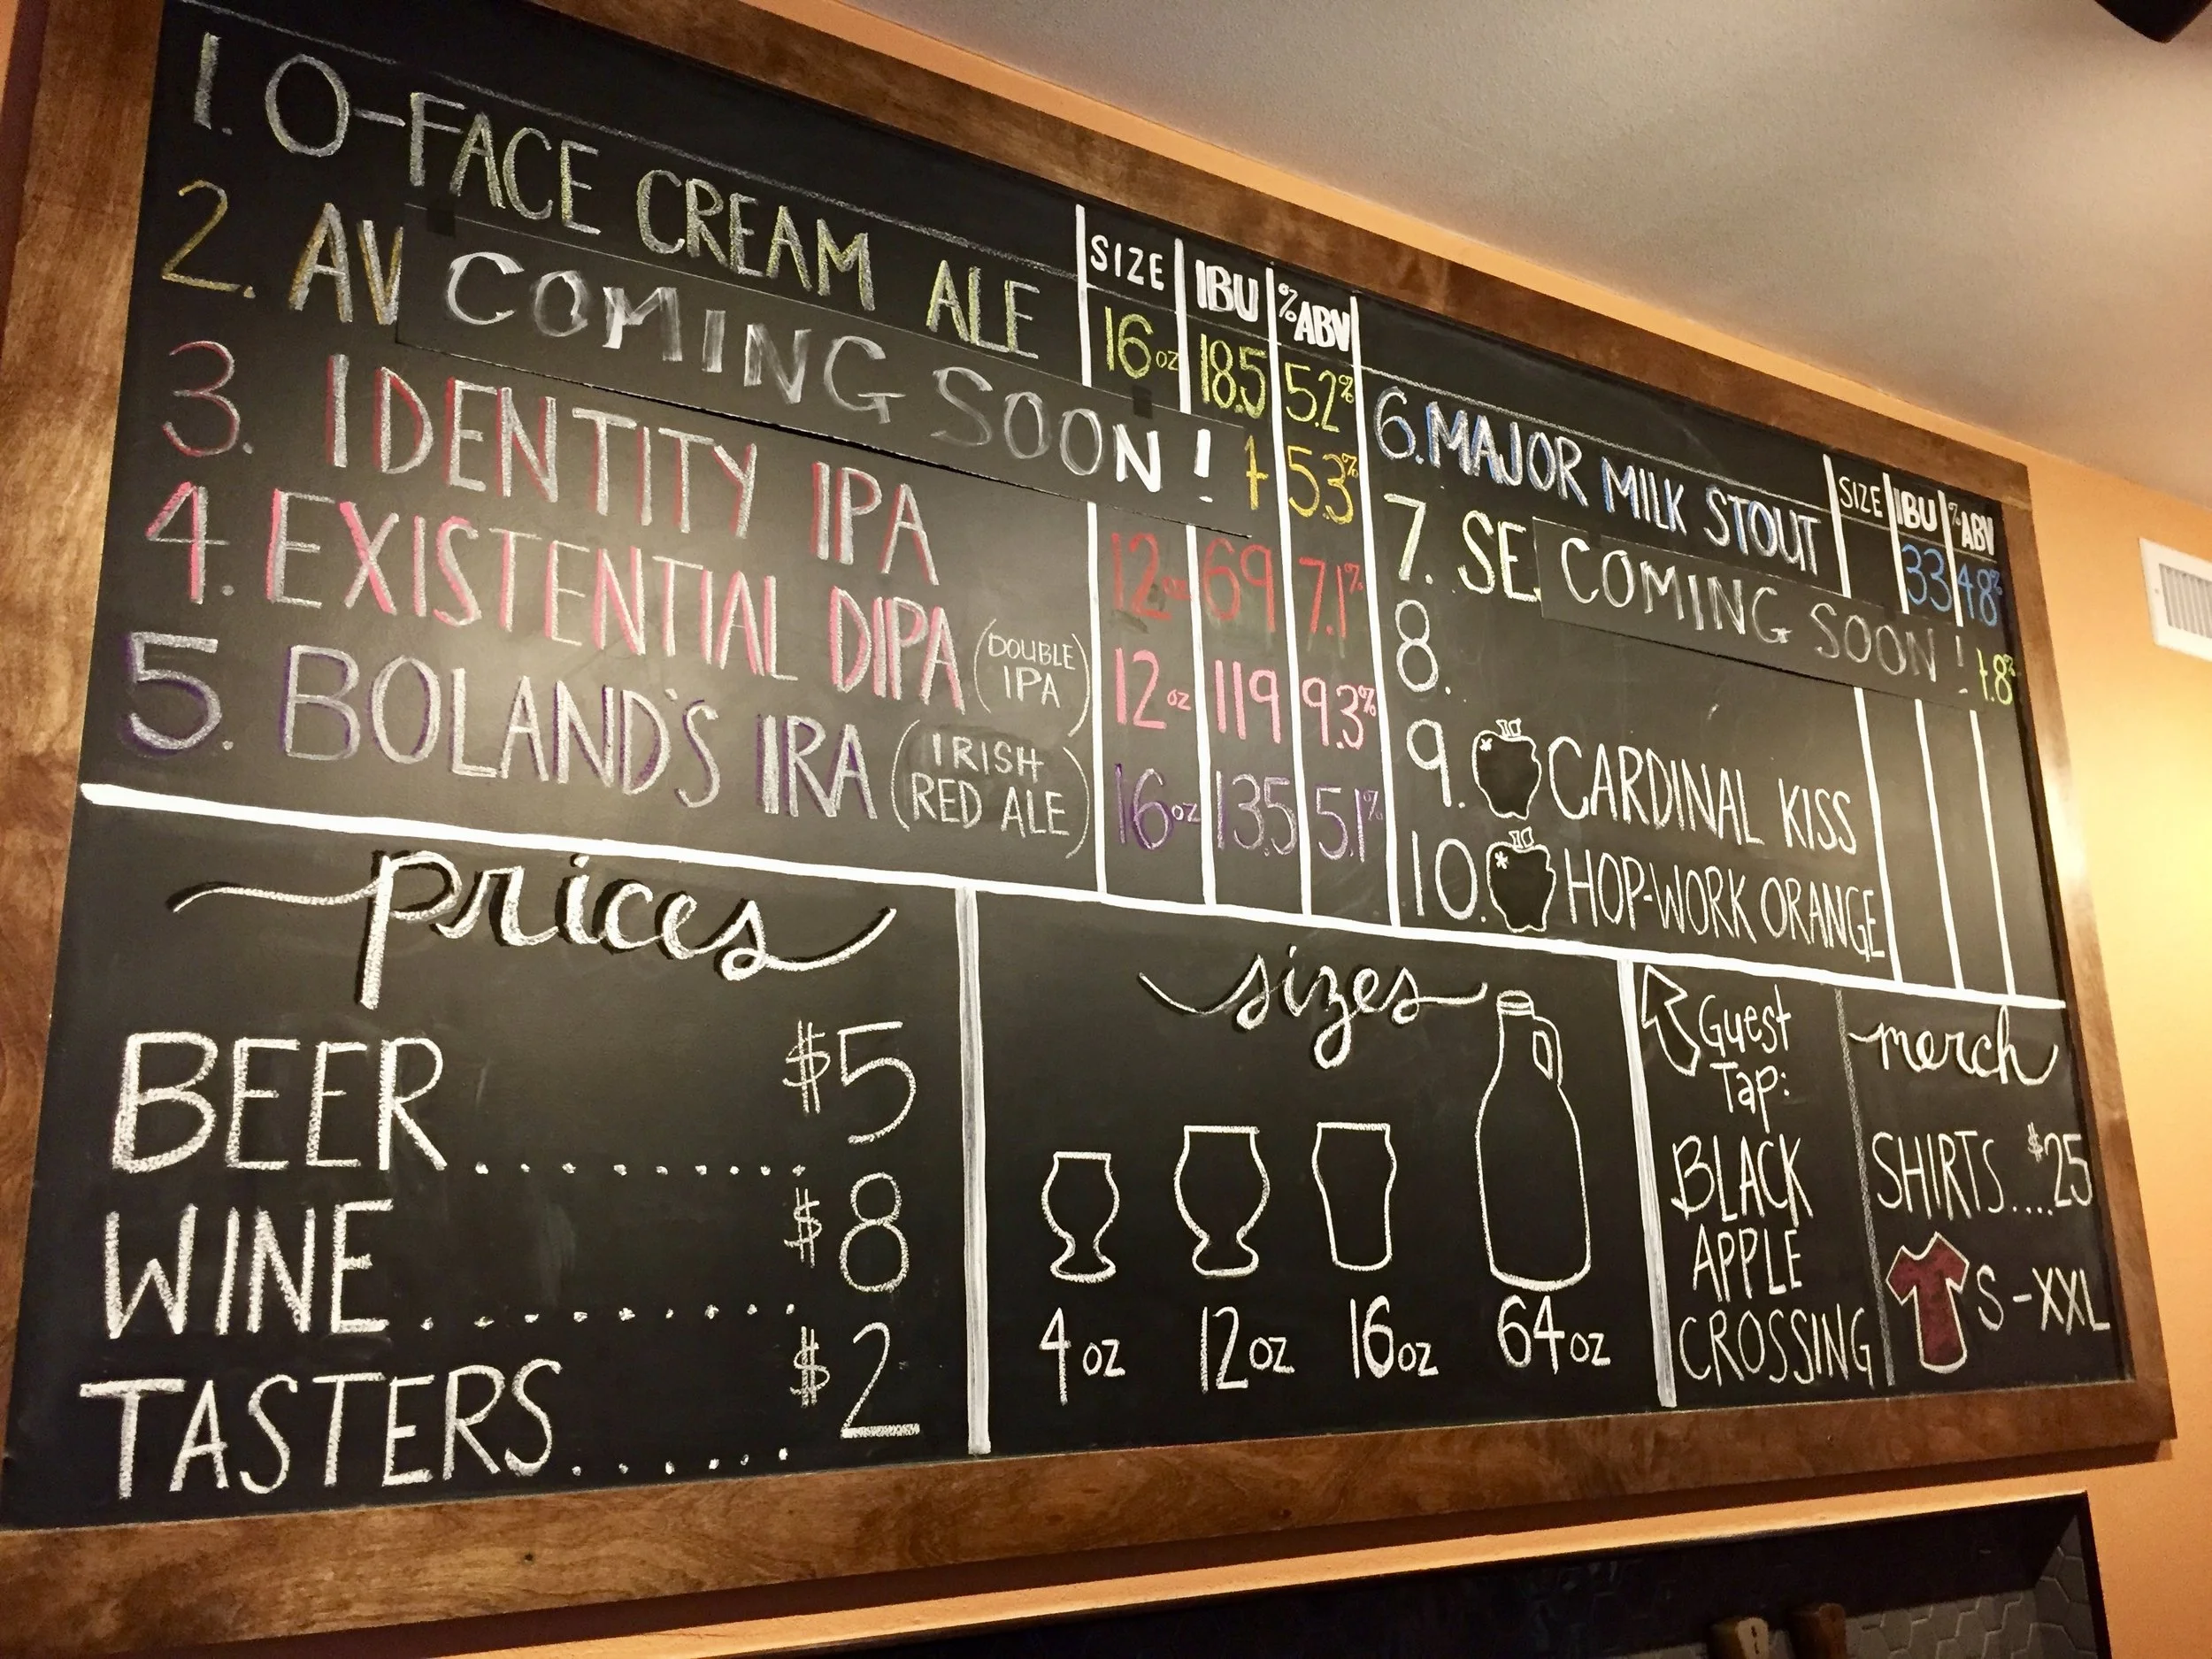 SIZE IBU %ABV
1. O-FACE CREAM ALE 16oz 18.5 5.2%
2. AV COMING SOON! 5.3%
3. IDENTITY IPA 12oz 69 7.1%
4. EXISTENTIAL DIPA (DOUBLE IPA) 12oz 119 9.3%
5. BOLAND'S IRA (IRISH RED ALE) 16oz 13.5 5.1%
SIZE IBU %ABV
6. MAJOR MILK STOUT 33 4.8%
7. SE COMING SOON! .8%
8.
9. CARDINAL KISS
10. HOP-WORK ORANGE
prices
BEER.......... $5
WINE.......... $8
TASTERS...... $2
sizes
4oz 12oz 16oz 64oz
Guest
Tap:
BLACK
APPLE
CROSSING
merch
SHIRTS....$25
S-XXL